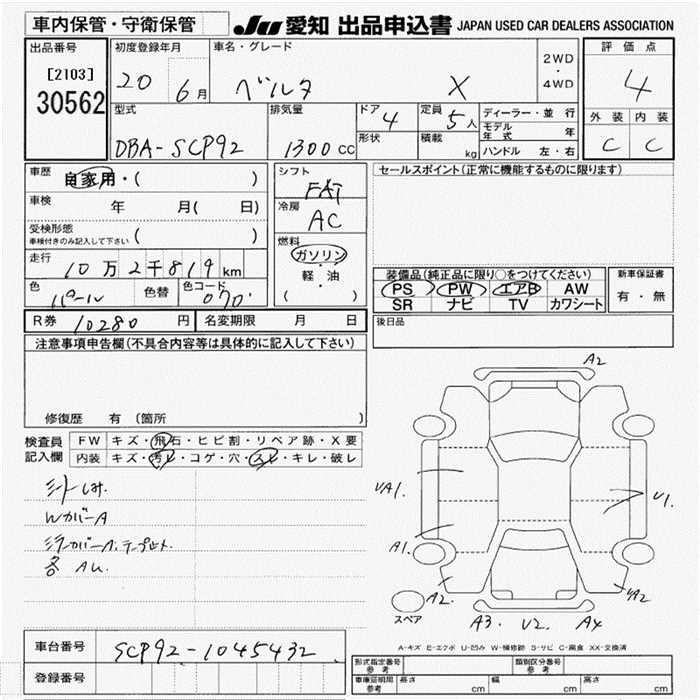 車内保管・守衛保管
JU 愛知 出品申込書 JAPAN USED CAR DEALERS ASSOCIATION
出品番号
[2103]
30562
初度登録年月
20 6月
車名・グレード
ベルタ X
2WD
・
4WD
評価点
4
外装 内装
C C
型式
DBA-SCP92
排気量
1300 CC
ドア
4
形状
定員
5人
積載
kg
ディーラー・並行
モデル年式 年
ハンドル 左・右
車歴
自家用・( )
車検 年 月( 日)
受検形態
車検付きのみ記入して下さい ( )
走行
10万2千819km
色
パール
色替
色コード
070
シフト
FAT
冷房
AC
燃料
ガソリン
・
軽・油
( )
セールスポイント(正常に機能するものに限ります)
装備品(純正品に限り○をつけてください)
PS PW エアB AW
SR ナビ TV カワシート
新車保証書
有・無
後日品
R券 10280 円
名変期限 月 日
注意事項申告欄(不具合内容等は具体的に記入して下さい)
修復歴 有 (箇所 )
検査員
記入欄
FW キズ・飛石・ヒビ割・リペア跡・X要
内装 キズ・汚レ・コゲ・穴・スレ・キレ・破レ
シートしみ.
WカバーA
ミラーカバーA.
各 AU.
A2
UA1.
U1.
A1.
A2.
UA2
A3. U2. A4
スペア
A-キズ E-エクボ U-凹み W-補修跡 S-サビ C-腐食 XX-交換済
車台番号 SCP92-1045432
登録番号
形式指定番号
参考
類別区分番号
参考
車庫証明用
参考
長さ cm
幅 cm
高さ cm